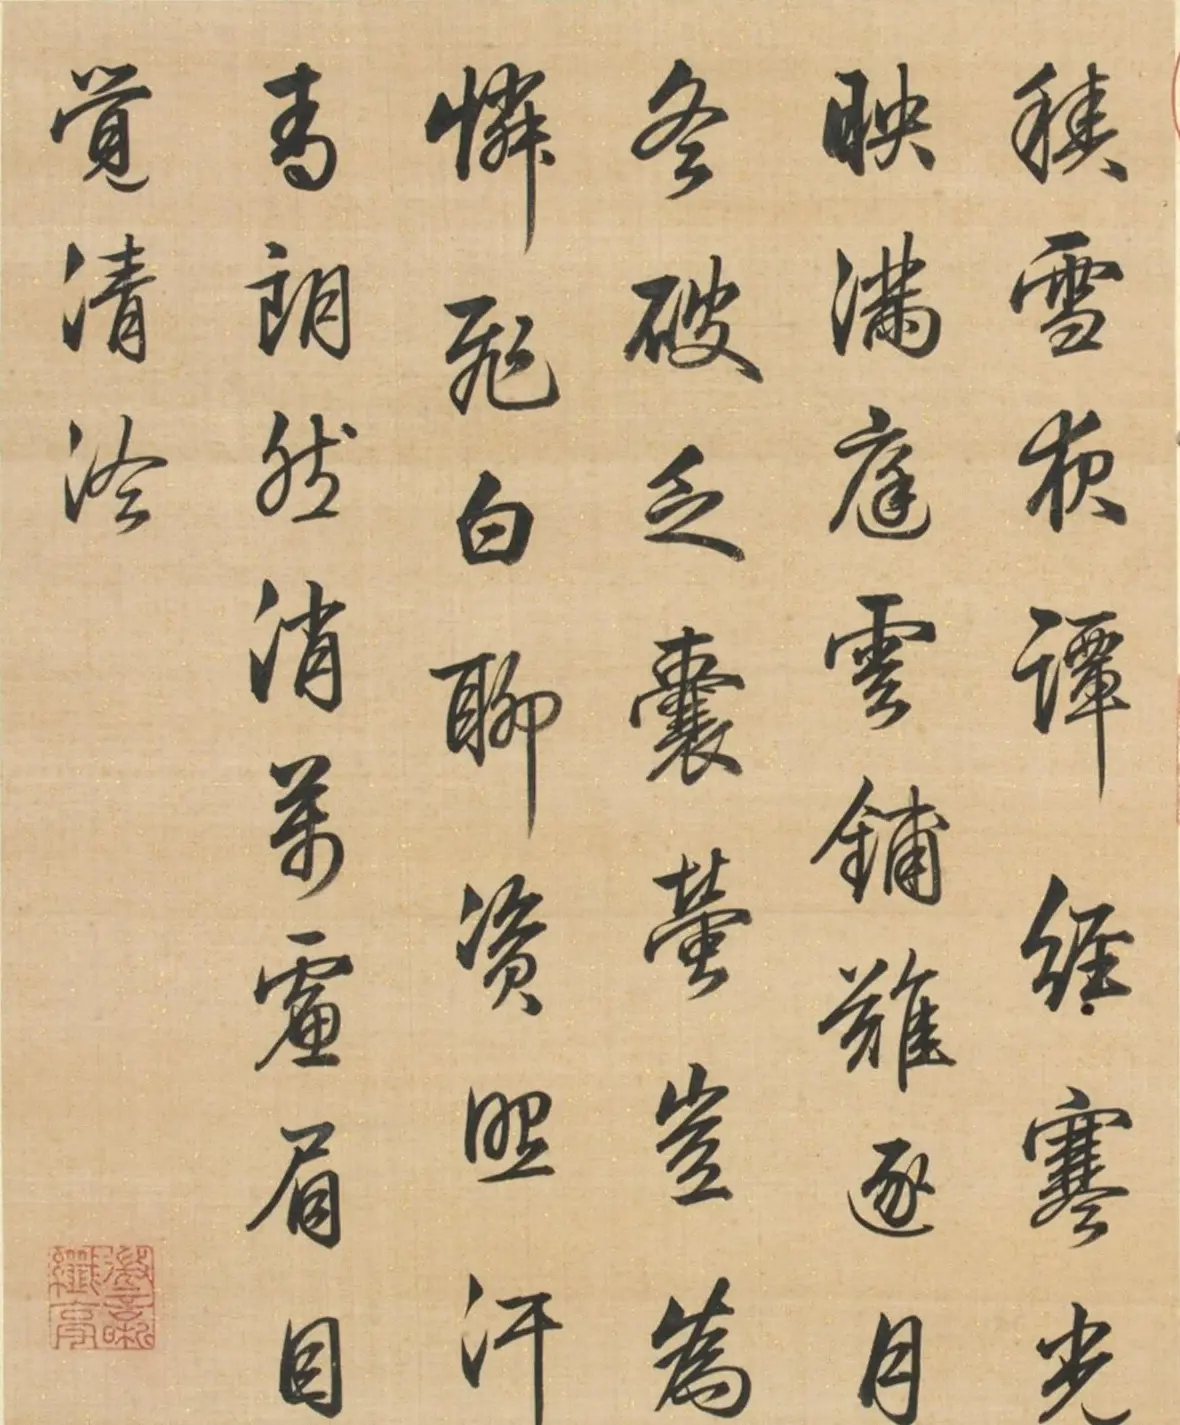 積雪夜譚經寒光
映滿庭雲鋪難逐月
冬破乏囊螢豈為
憐飛白聊資照汗
青朗然消萬慮眉目
覺清泠